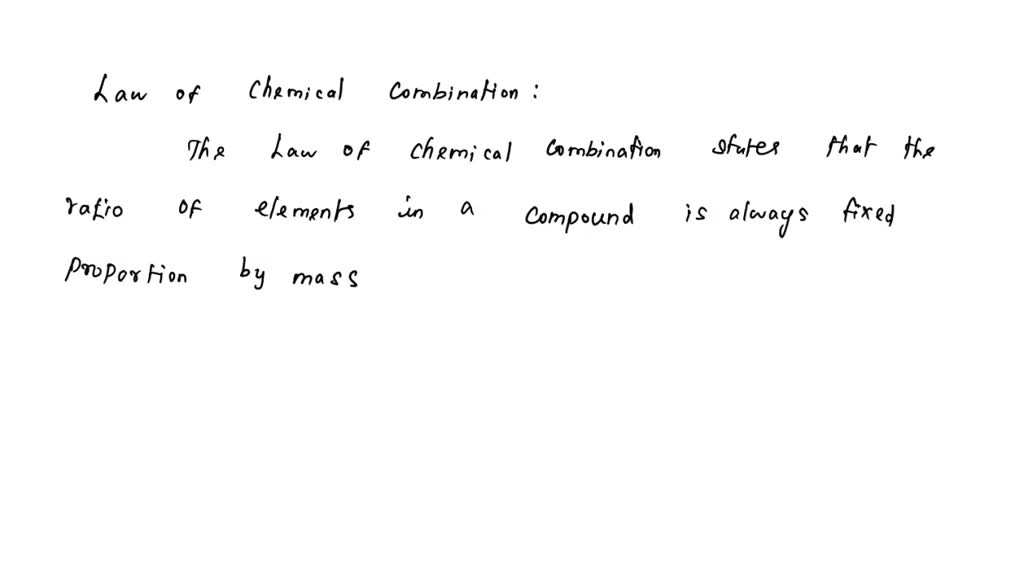 Law of Chemical Combination :
The Law of chemical combination states that the
ratio of elements in a compound is always fixed
proportion by mass